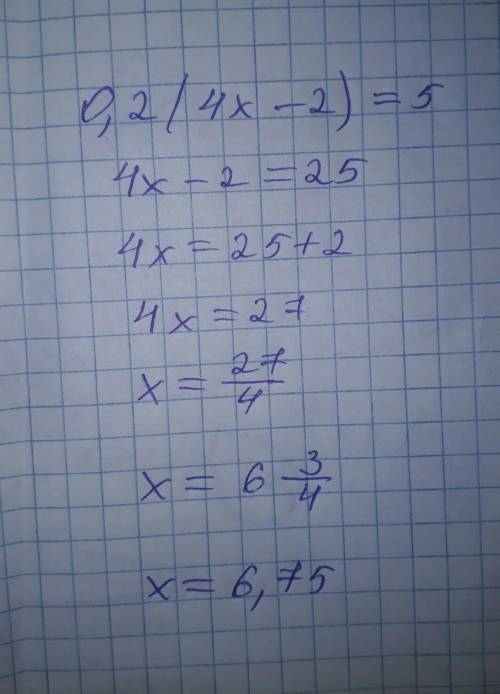 0,2(4x - 2) = 5
4x - 2 = 25
4x = 25 + 2
4x = 27
x = 27/4
x = 6 3/4
x = 6,75